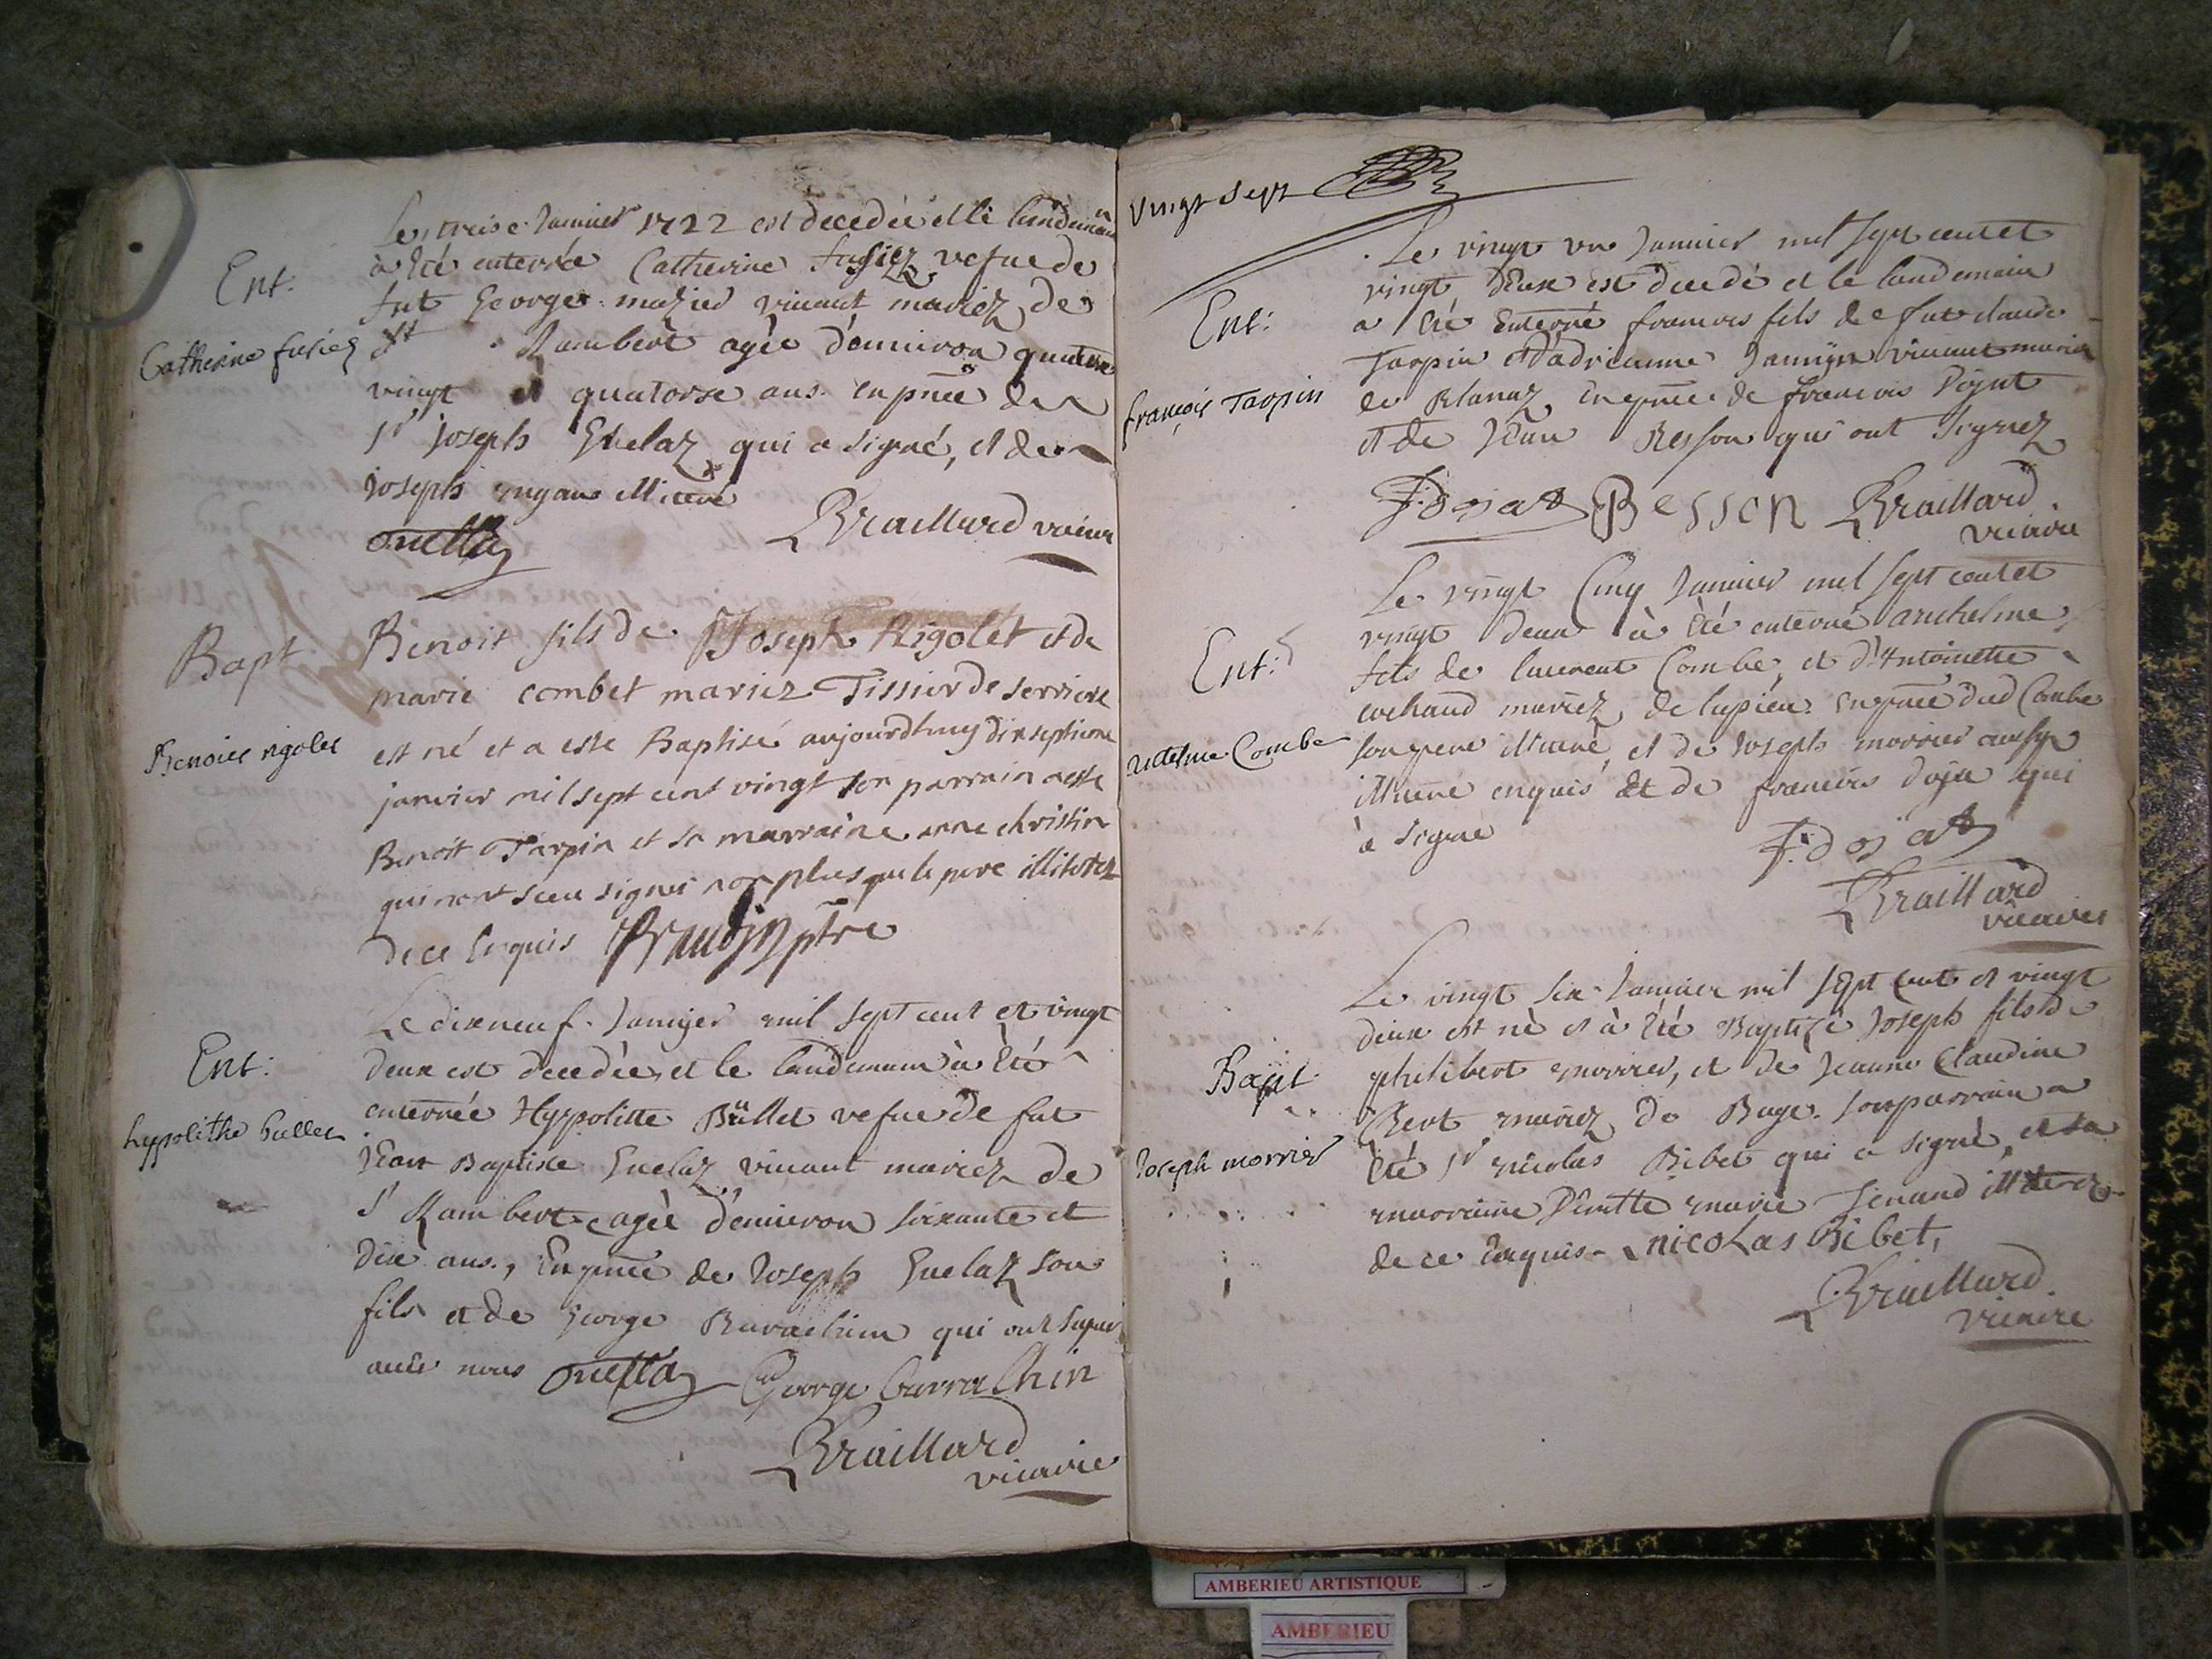 Ent:
Catherine fusiez
Le treise Januier 1722 est decedée et le landemain
à été enterrée Catherine fusiez vefue de
fut George mazier viuant mariez de
St Rambert agée d'enuiron quatre
vingt et quatorse ans. en pnce de
Sr Joseph Guelaz qui a signé, et de
Joseph illiteré
Braillard vicaire
Bapt
Benoict rigolet
Benoit fils de Joseph Rigolet et de
marie combet mariez Tissier de serriere
est né et a este Baptisé aujourdhuy dixseptieme
janvier mil sept cent vingt son parrain a esté
Benoit Tarpin et sa marraine anne christin
qui n'ont sceu signer non plus que le pere illiterez
de ce Enquis Braudin ptre
Ent:
hyppolithe bullet
Le dixneuf Januyer mil sept cent et vingt
deux est decedée, et le landemain à été
enterrée Hyppolitte Büllet vefue de fut
Jean Baptiste Guelaz viuant mariez de
St Rambert agée d'enuiron soixante et
dix ans, En pnce de Joseph Guelaz son
fils et de George Burrachin qui ont signé
auec nous George burrachin
Braillard
vicaire
vingt sept
Ent:
françois Tarpin
Le vingt un Januier mil sept cent et
vingt deux est decedé et le landemain
a été Enterré francois fils de fut claude
Tarpin et d'adrienne Jamijn viuant mariez
de Blanaz, En pnce de francois Dojat
et de Jean Besson qui ont signez
F. dojat Besson Braillard
vicaire
Ent:
antelme Combe
Le vingt Cinq Januier mil sept cent et
vingt deux à été enterré anthelme
fils de laurent Combe, et d'Antoinette
cochand mariez de lupieu. En pnce dud Combe
son pere illiteré, et de Joseph morrier aussy
illiteré enquis Et de francois doja qui
à signé
F. dojat
Braillard
vicaires
Bapt
Joseph morrier
Le vingt six Januier mil sept cent et vingt
deux est né et à été Baptizé Joseph fils de
philibert morrier, et de Jeanne Claudine
Bert mariez de Buge. son parrain a
été Sr nicolas Bibet qui a signé, et sa
marraine Pernette marie Jenand illiterez
de ce Enquis. nicolas Bibet,
Braillard
vicaire
AMBERIEU ARTISTIQUE
AMBERIEU